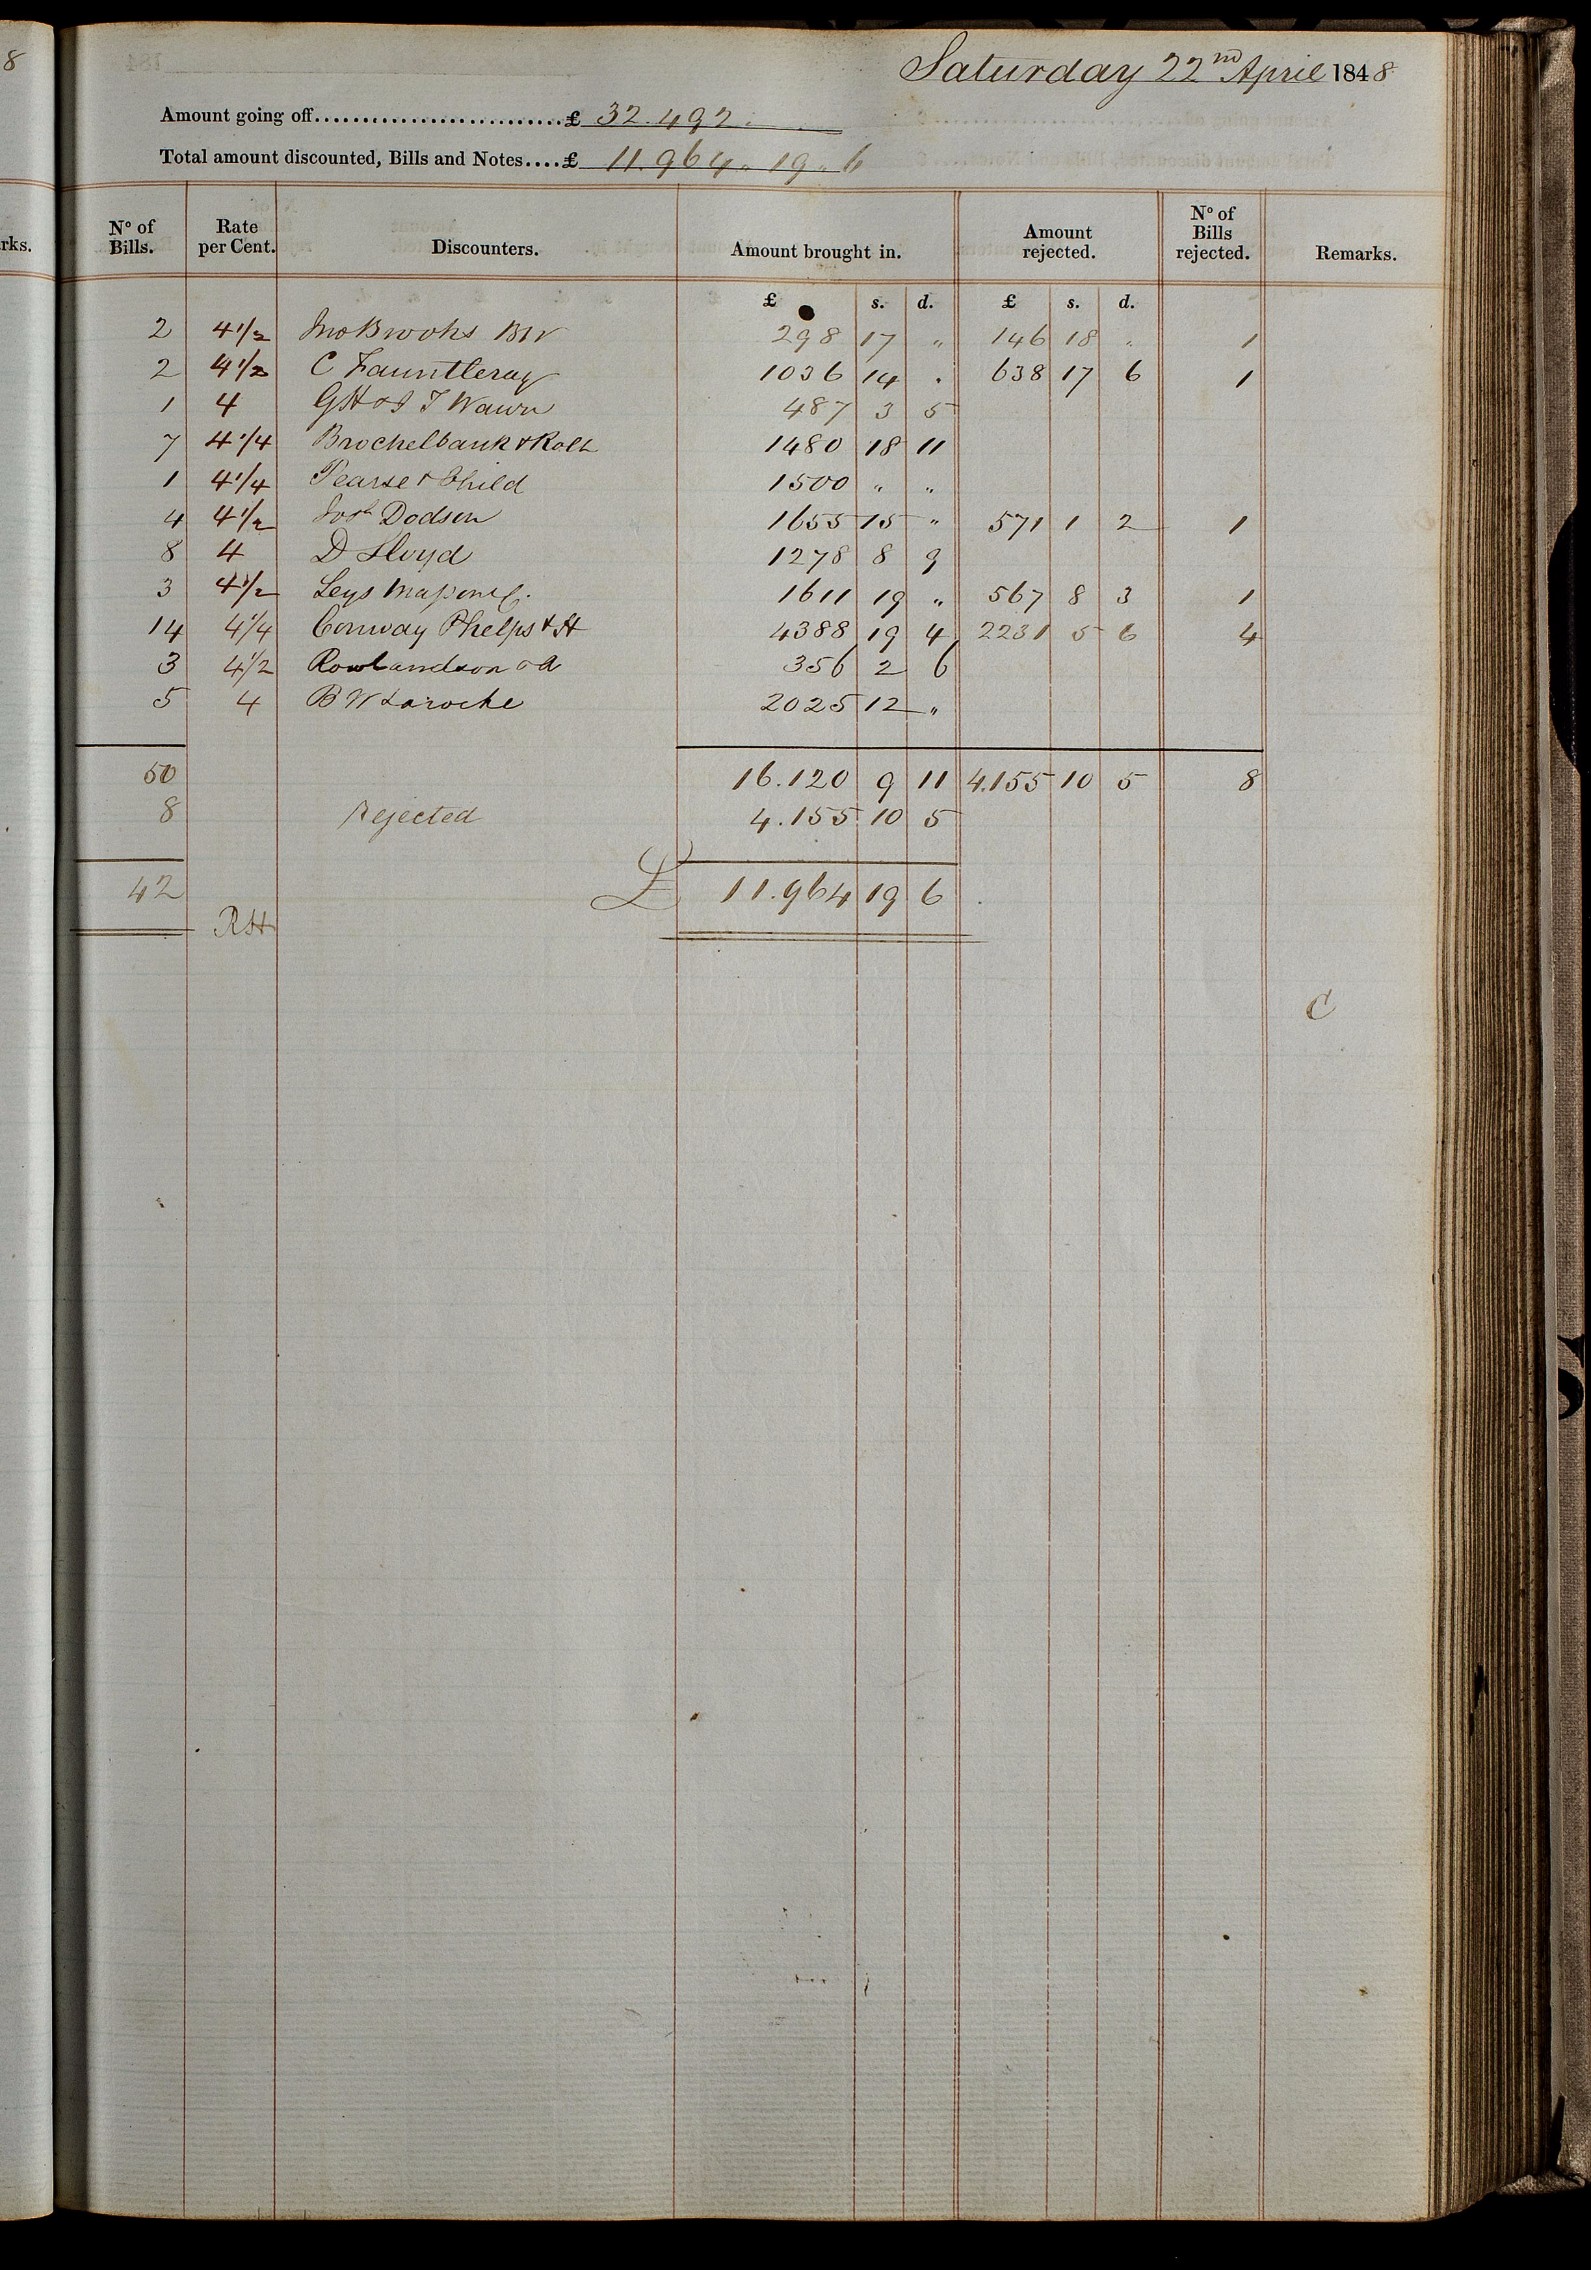 8
Saturday 22nd April 1848
Amount going off........................£ 32.492.
Total amount discounted, Bills and Notes....£ 11.964 " 19 " 6
rks.
No of Bills. Rate per Cent. Discounters. Amount brought in. Amount rejected. No of Bills rejected. Remarks.
£ s. d. £ s. d.
2 4 1/2 Jno Brooks 298 17 " 146 18 " 1
2 4 1/2 C Fauntleroy 1036 14 " 638 17 6 1
1 4 GH & J T Wawn 487 3 5
7 4 1/4 Brockelbank & Rolls 1480 18 11
1 4 1/4 Pearse & Child 1500 " "
4 4 1/2 Josh Dodson 1655 15 " 571 1 2 1
8 4 D Lloyd 1278 8 9
3 4 1/2 Leys Mason & C. 1611 19 " 567 8 3 1
14 4 1/4 Conway Phelps & H 4388 19 4 2231 5 6 4
3 4 1/2 Rowlandson & A 356 2 6
5 4 B W Laroche 2025 12 "
50 16.120 9 11 4.155 10 5 8
8 rejected 4.155 10 5
42 £ 11.964 19 6
RH
C